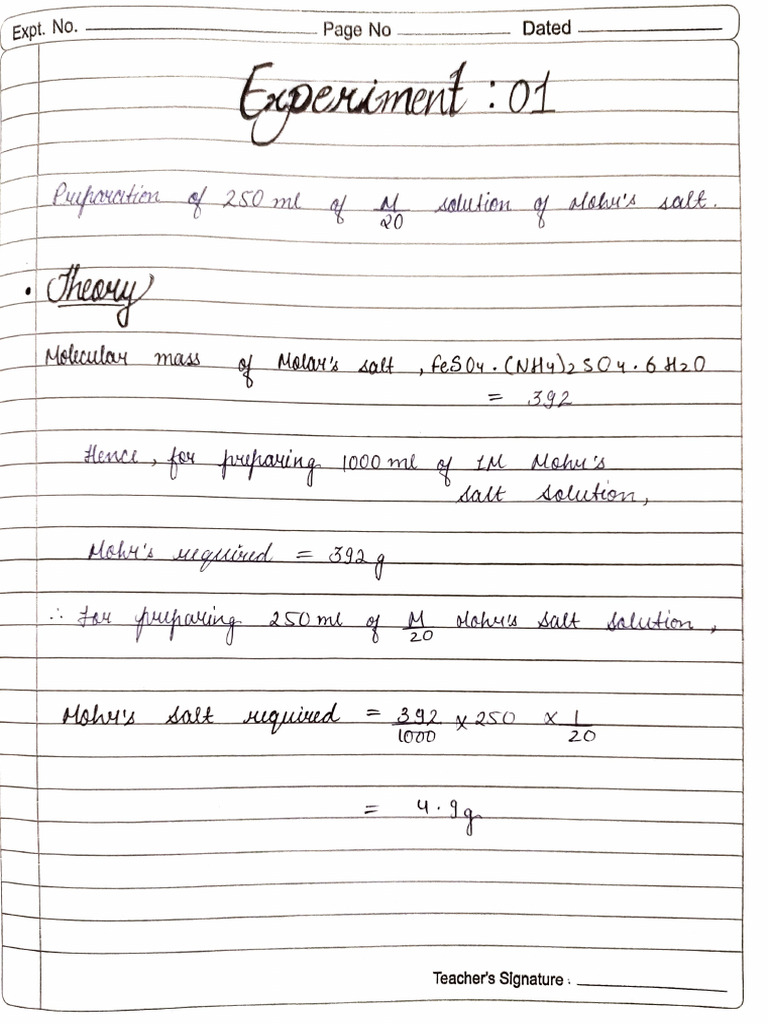 Expt. No. Page No Dated
Experiment : 01
Preparation of 250 ml of M/20 solution of Mohr's salt.
• Theory
Molecular mass of Molar's salt , FeSO4 . (NH4)2 SO4 . 6 H2O
= 392
Hence , for preparing 1000 ml of 1M Mohr's
salt solution,
Mohr's required = 392 g
∴ For preparing 250 ml of M/20 Mohr's salt solution ,
Mohr's salt required = 392/1000 x 250 x 1/20
= 4.9g
Teacher's Signature :